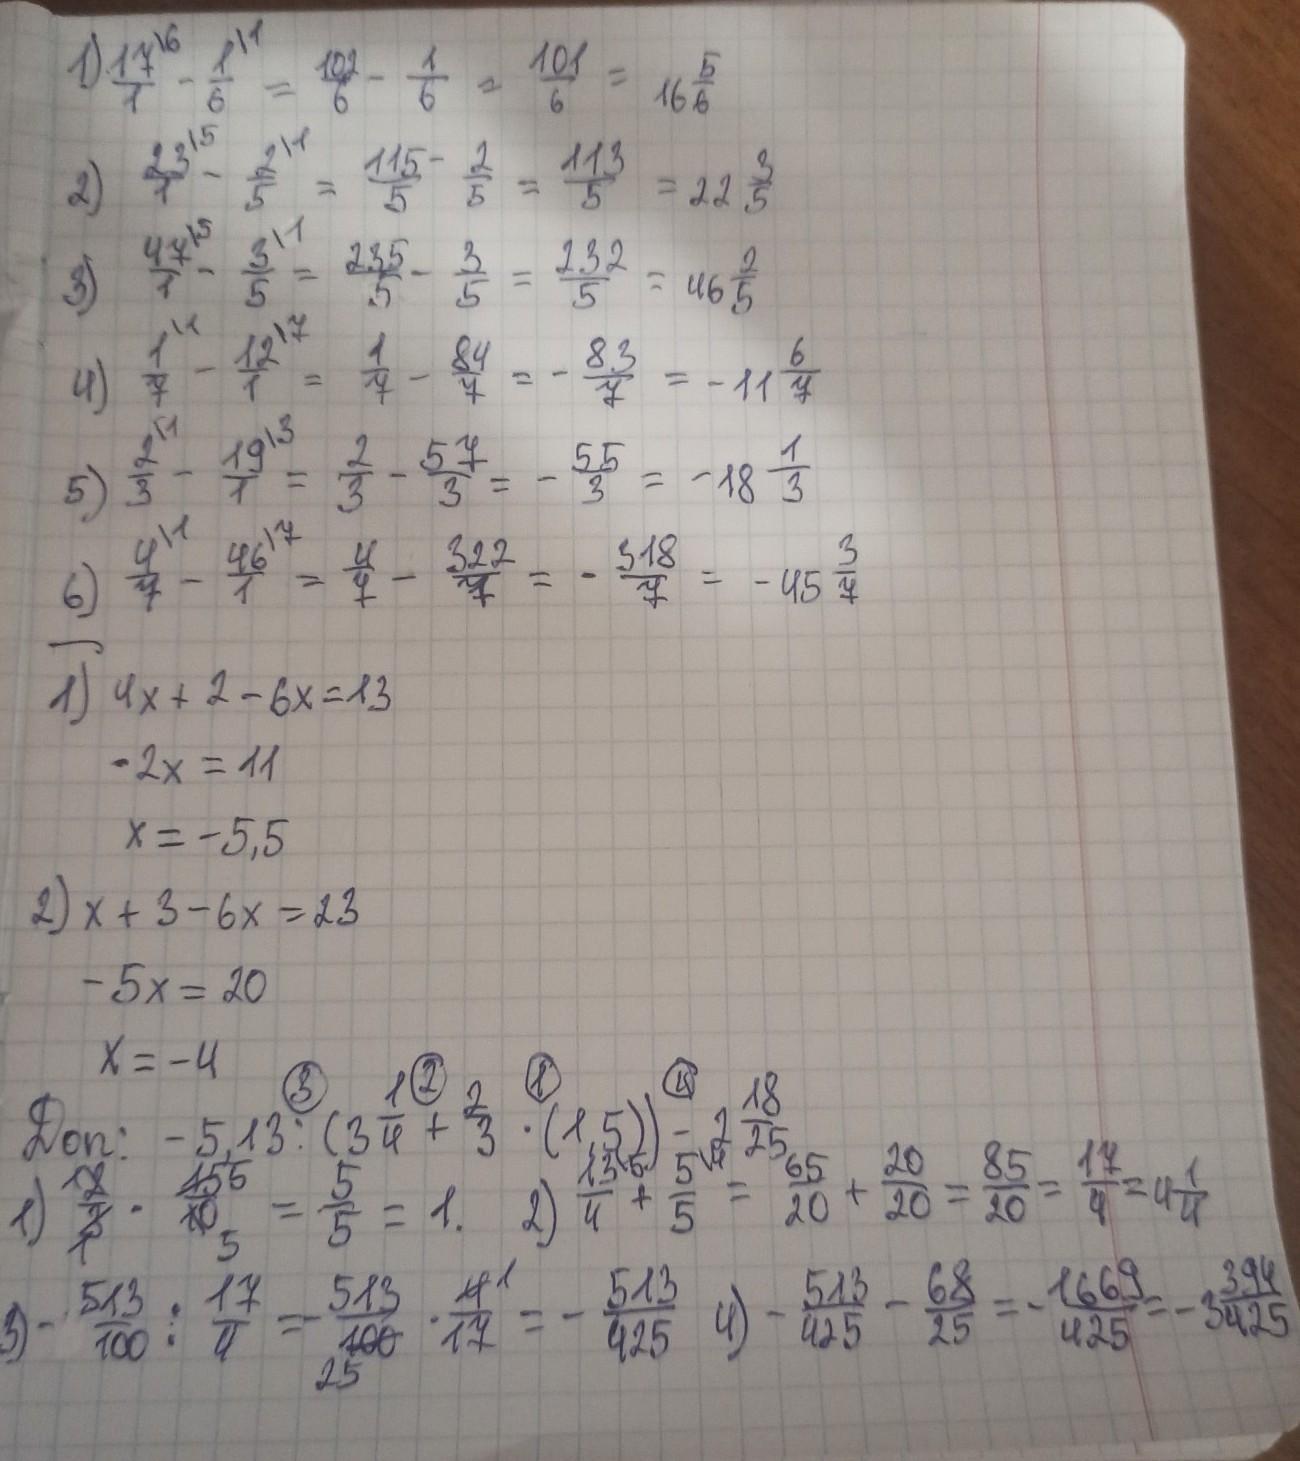 1) 17\6/1 - 1\1/6 = 102/6 - 1/6 = 101/6 = 16 5/6
2) 23\5/1 - 2\1/5 = 115/5 - 2/5 = 113/5 = 22 3/5
3) 47\5/1 - 3\1/5 = 235/5 - 3/5 = 232/5 = 46 2/5
4) 1\1/7 - 12\7/1 = 1/7 - 84/7 = - 83/7 = -11 6/7
5) 2\1/3 - 19\3/1 = 2/3 - 57/3 = - 55/3 = -18 1/3
6) 4\1/7 - 46\7/1 = 4/7 - 322/7 = - 318/7 = -45 3/7
1) 4x + 2 - 6x = 13
-2x = 11
x = -5,5
2) x + 3 - 6x = 23
-5x = 20
x = -4
3 2 1 4
Доп: -5,13 : (3 1/4 + 2/3 · (1,5)) - 2 18/25
1) 2/3 · 15 5/10 5 = 5/5 = 1. 2) 13\5/4 + 5\4/5 = 65/20 + 20/20 = 85/20 = 17/4 = 4 1/4
3) - 513/100 : 17/4 = - 513/100 25 · 4 1/17 = - 513/425 4) - 513/425 - 68/25 = - 1669/425 = - 3 394/425